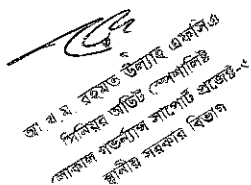 আ. খ. ম. রহমত উল্যাহ এফসিএ
সিনিয়র অডিট স্পেশালিষ্ট
লোকাল গভর্ন্যান্স সাপোর্ট প্রজেক্ট-২
স্থানীয় সরকার বিভাগ